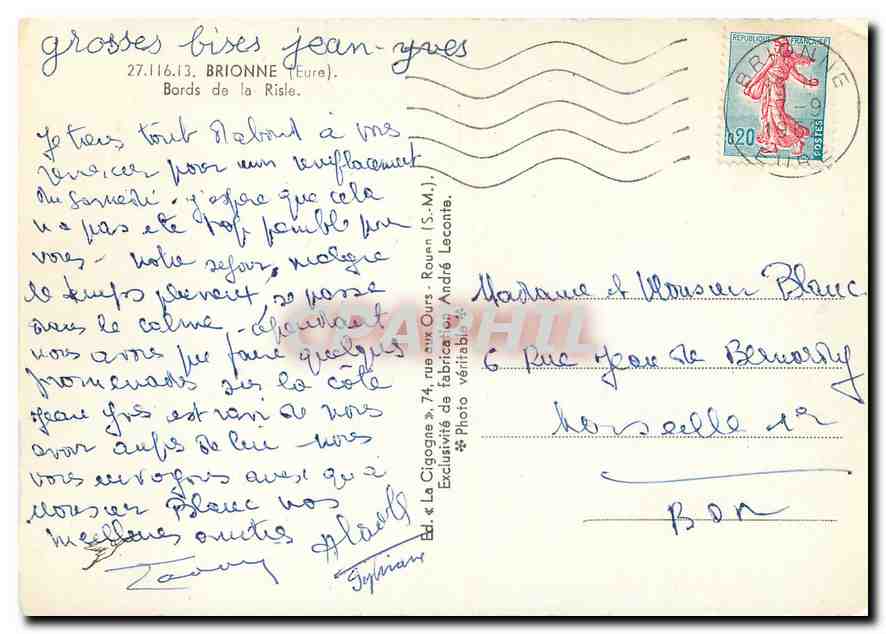 grosses bises jean-yves
27.116.13. BRIONNE (Eure).
Bords de la Risle.
Je tiens tout d'abord à vous
remercier pour mon remplacement
du Samedi - j'espère que cela
n'a pas été trop penible pour
vous - notre sejour, malgré
le temps pluvieux, se passe
dans le calme - cependant
nous avons pu faire quelques
promenades sur la côte
jean Yves est ravi de nous
avoir auprès de lui - nous
vous envoyons ainsi qu'à
Monsieur Blanc nos
meilleures amitiés
Sylviane
Ed. « La Cigogne », 74, rue aux Ours - Rouen (S.-M.).
Exclusivité de fabrication André Leconte.
✻ Photo véritable ✻
CPAPHIL
REPUBLIQUE FRANÇAISE
0,20
POSTES
BRIONNE
EURE
Madame et Monsieur Blanc
6 Rue Jean de Bernardy
Marseille 1er
BDR